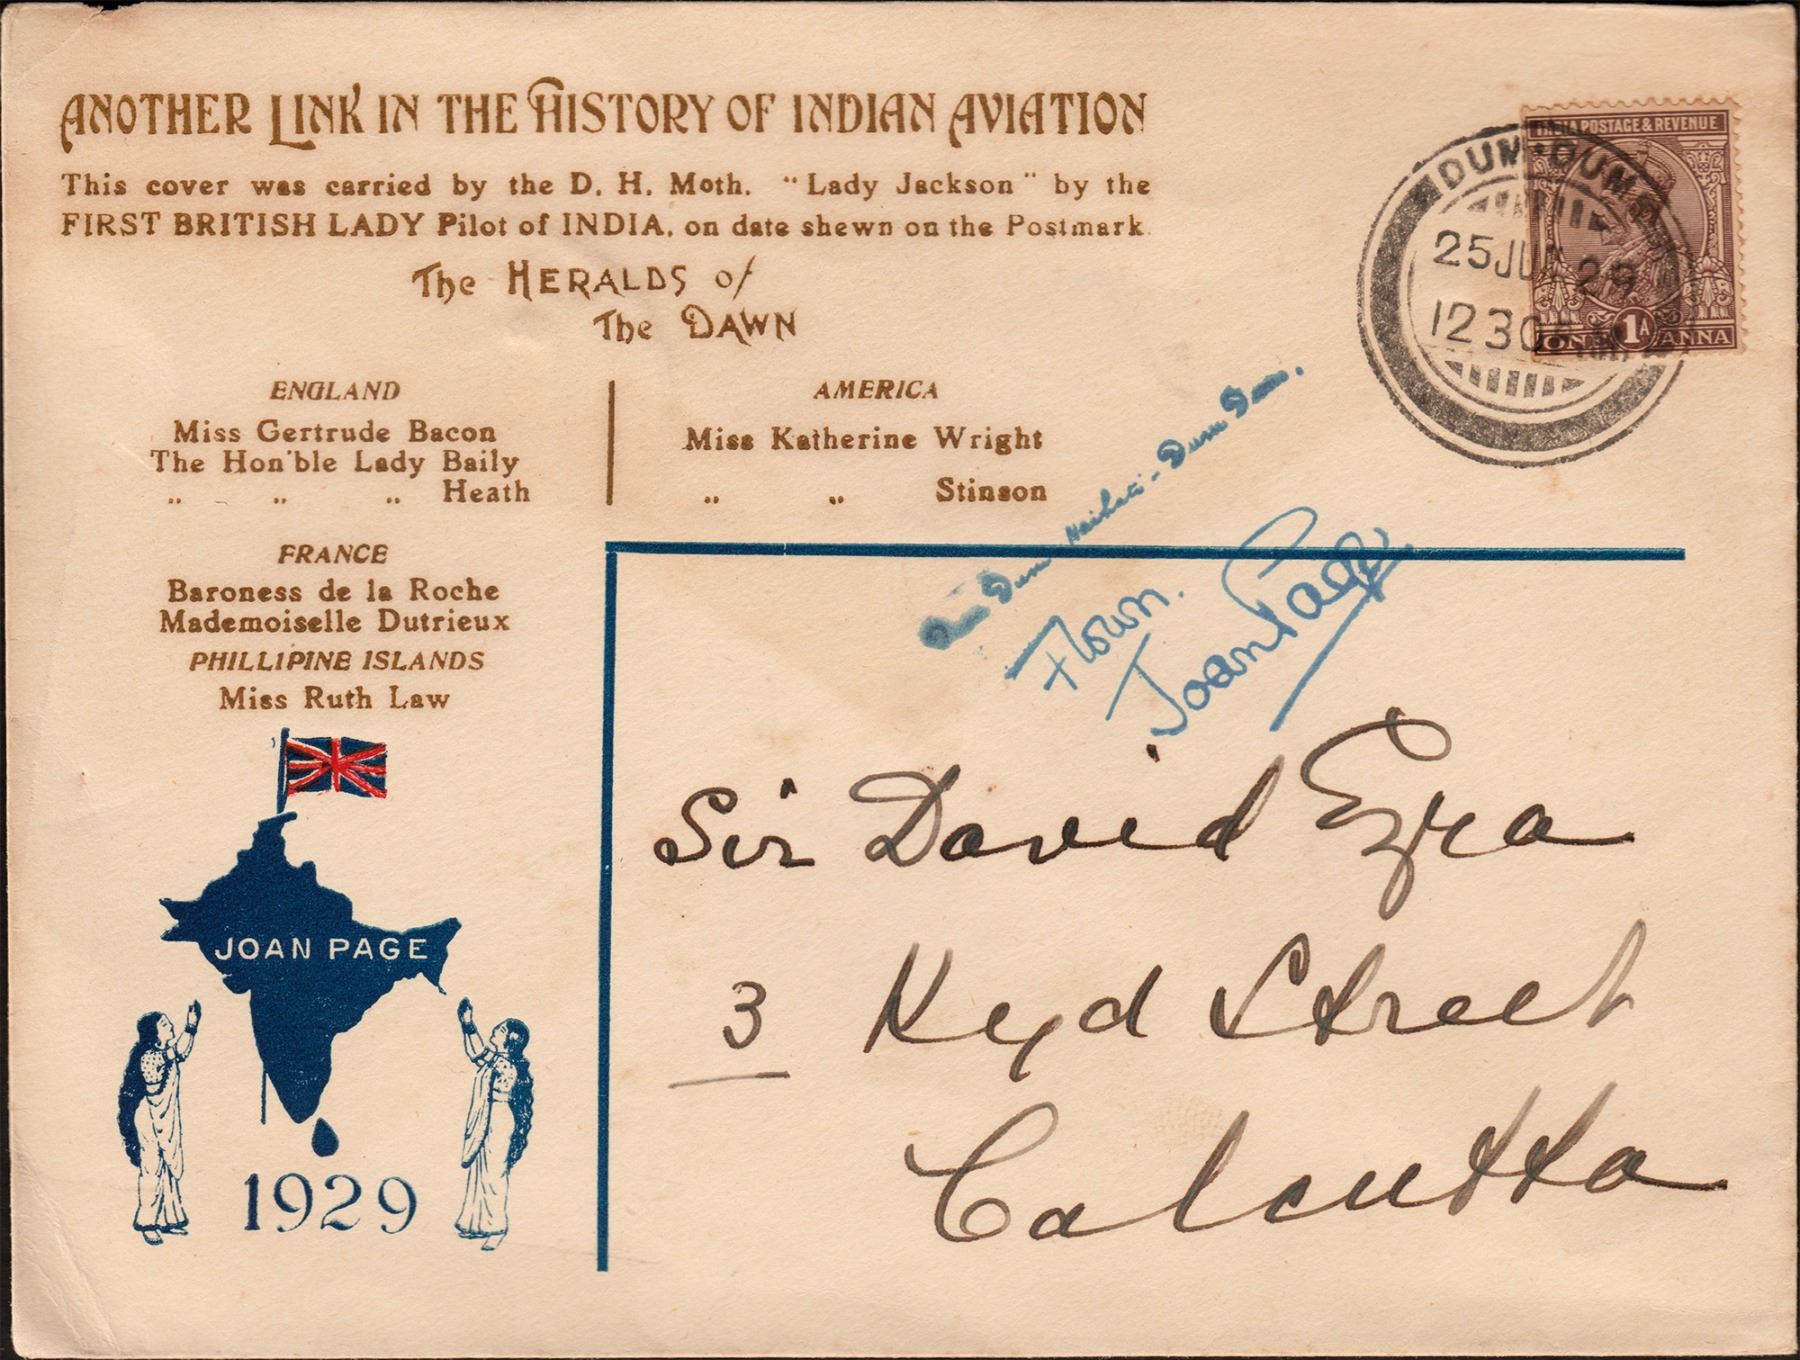 ANOTHER LINK IN THE HISTORY OF INDIAN AVIATION
This cover was carried by the D. H. Moth. "Lady Jackson" by the
FIRST BRITISH LADY Pilot of INDIA, on date shewn on the Postmark.
The HERALDS of
The DAWN
ENGLAND
Miss Gertrude Bacon
The Hon'ble Lady Baily
„ „ „ Heath
AMERICA
Miss Katherine Wright
„ „ Stinson
FRANCE
Baroness de la Roche
Mademoiselle Dutrieux
PHILLIPINE ISLANDS
Miss Ruth Law
JOAN PAGE
1929
POSTAGE & REVENUE
1A
ONE ANNA
DUM-DUM
25 JU 29
12 30
Dum Naihati - Dum Dum.
Flown.
Joan Page
Sir David Ezra
3 Kyd Street
Calcutta